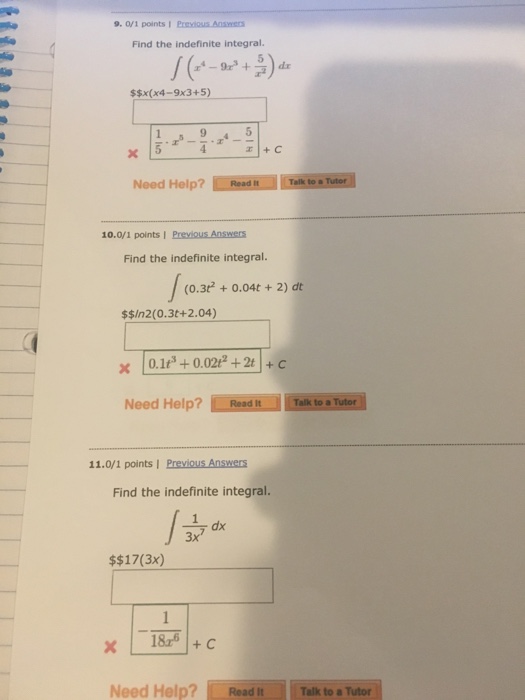 9. 0/1 points | Previous Answers
Find the indefinite integral.
∫ (x⁴ − 9x³ + 5/x²) dx
$$x(x4−9x3+5)
1/5 · x⁵ − 9/4 · x⁴ − 5/x + C
Need Help? Read It Talk to a Tutor
10. 0/1 points | Previous Answers
Find the indefinite integral.
∫ (0.3t² + 0.04t + 2) dt
$$ln2(0.3t+2.04)
0.1t³ + 0.02t² + 2t + C
Need Help? Read It Talk to a Tutor
11. 0/1 points | Previous Answers
Find the indefinite integral.
∫ 1/3x⁷ dx
$$17(3x)
−1/18x⁶ + C
Need Help? Read It Talk to a Tutor